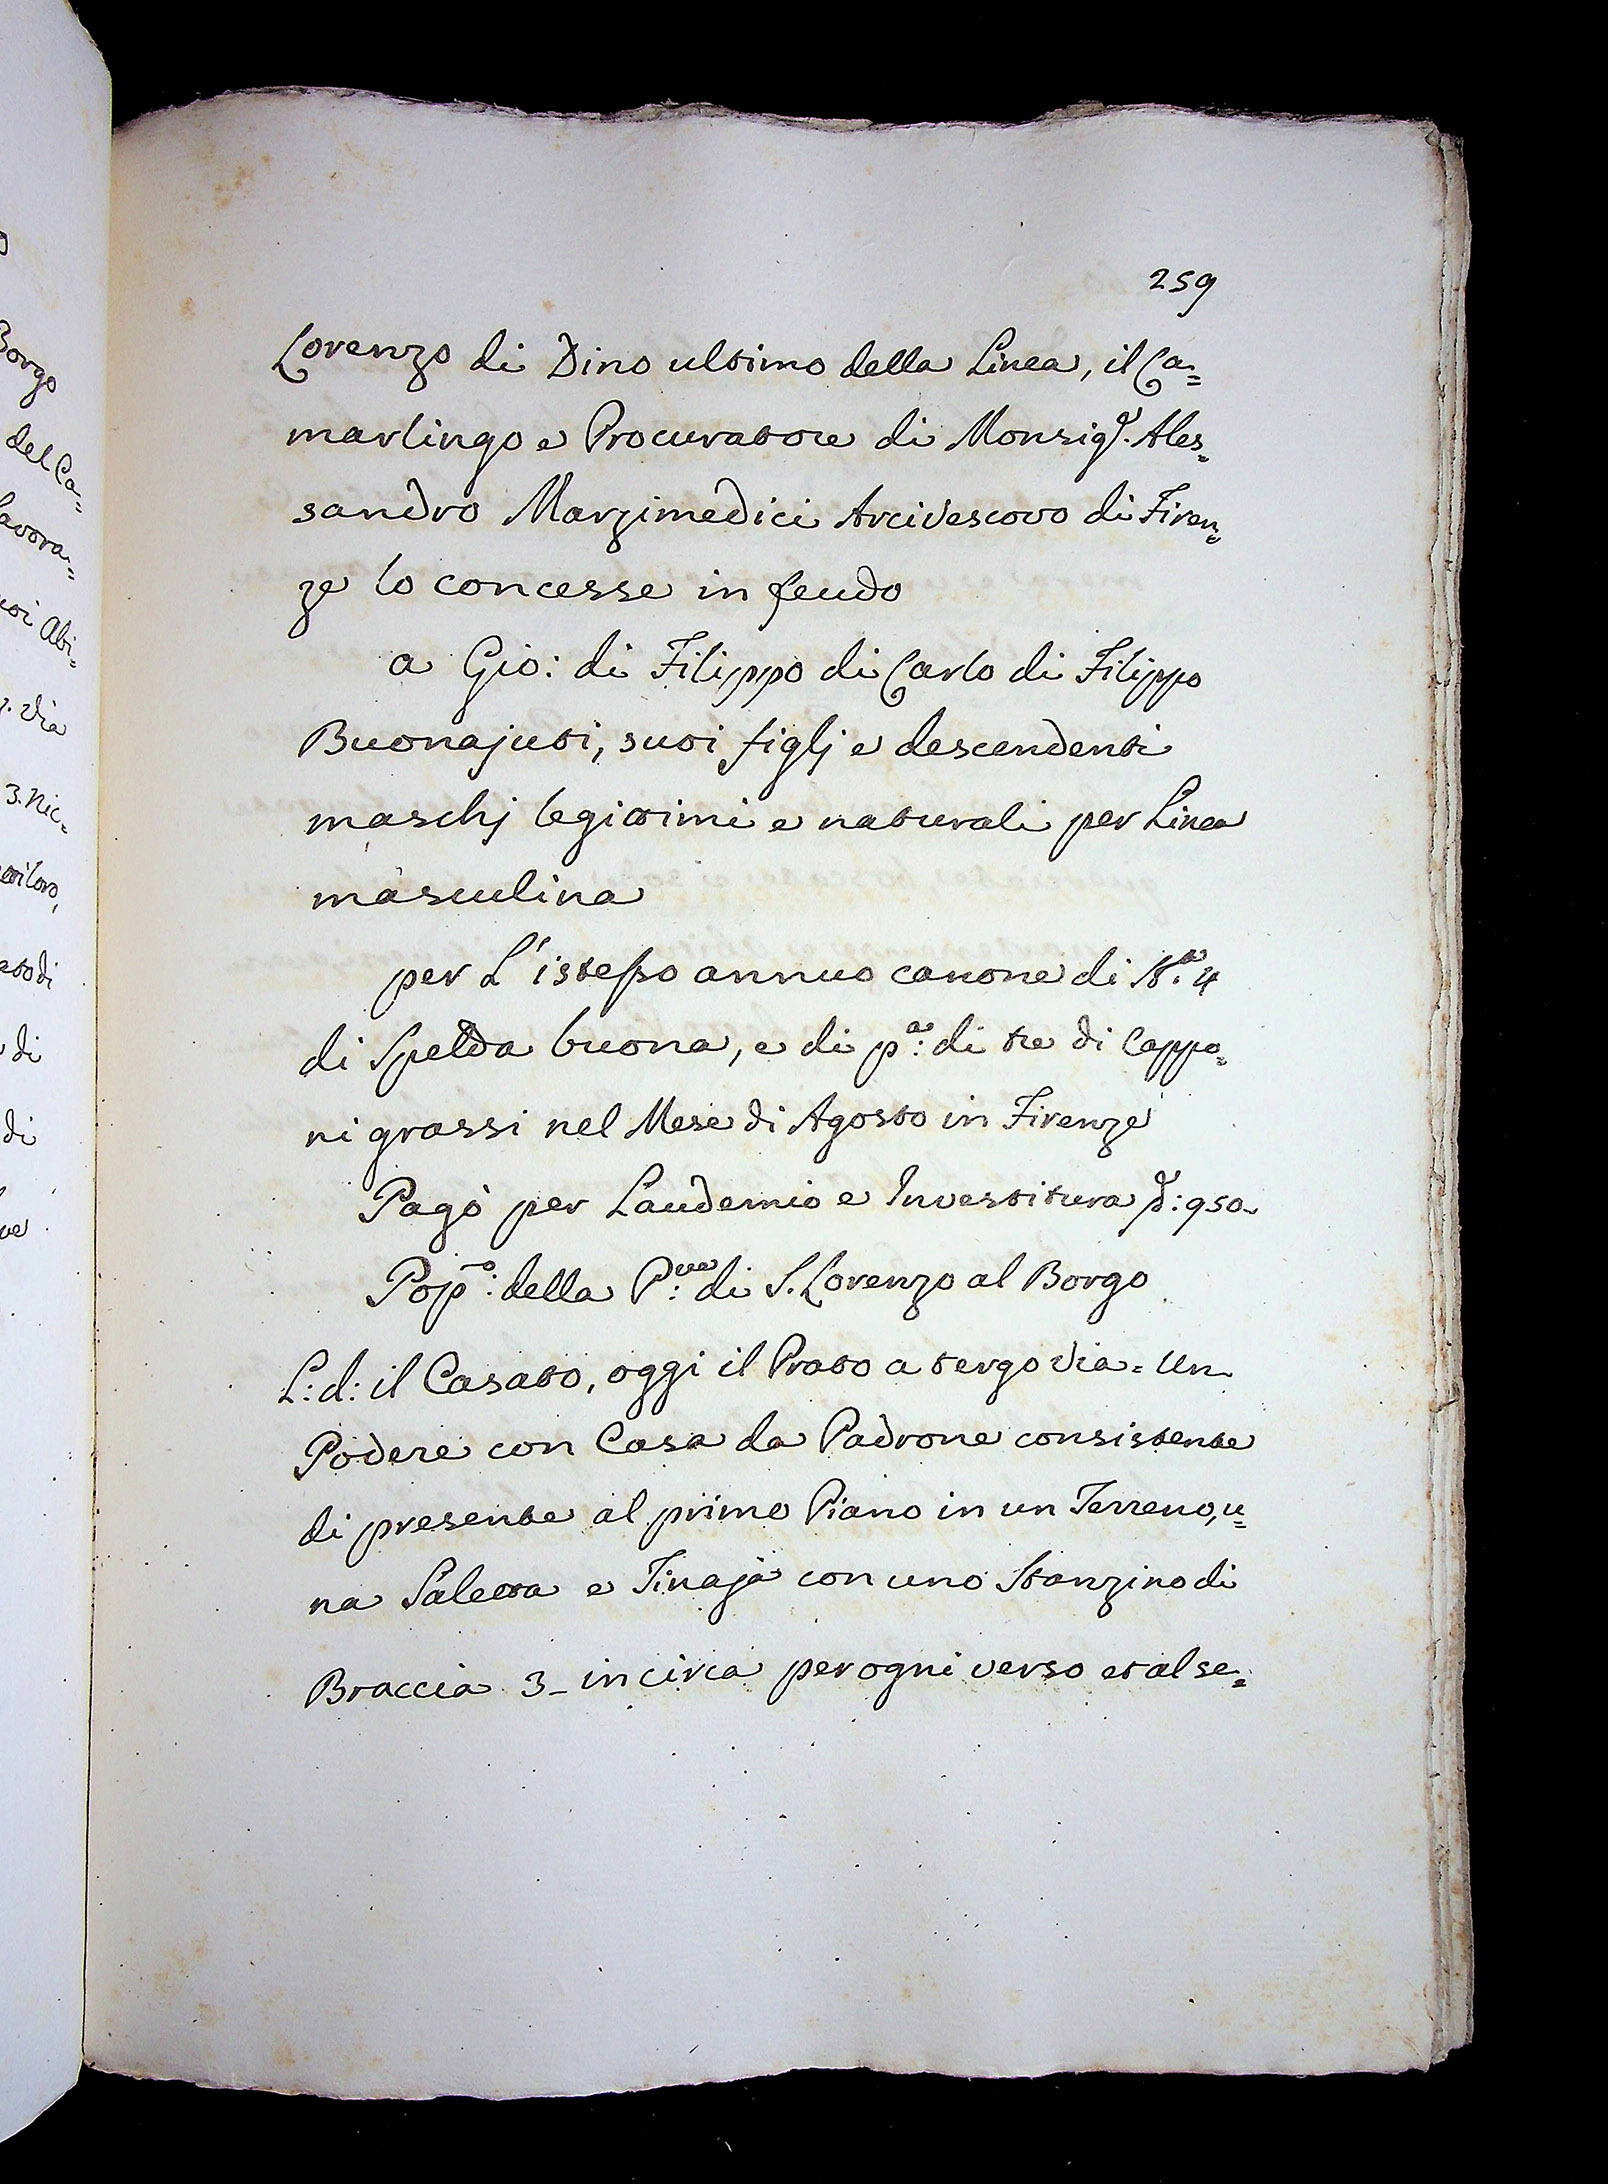 Borgo
del Ca=
lavora=
Abi=
Via
3. Nic=
loro,
di
di
di
259
Lorenzo di Dino ultimo della Linea, il Ca=
marlingo e Procuratore di Monsig.r Ales=
sandro Marzimedici Arcivescovo di Firen=
ze lo concesse in feudo
a Gio: di Filippo di Carlo di Filippo
Buonajuti, suoi figlj e descendenti
maschj legittimi e naturali per Linea
masculina
per L'istesso annuo canone di St.a 4
di Spelda buona, e di p.a: di tre di Cappo=
ni grassi nel Mese di Agosto in Firenze
Pagò per Laudemio e Investitura 950-
Pop.o: della P.ve: di S. Lorenzo al Borgo
L: d: il Casato, oggi il Prato a tergo Via = Un
Podere con Casa da Padrone consistente
di presente al primo Piano in un Terreno, u=
na Saletta e Tinaja con uno Stanzino di
Braccia 3_ incirca per ogni verso et al se=